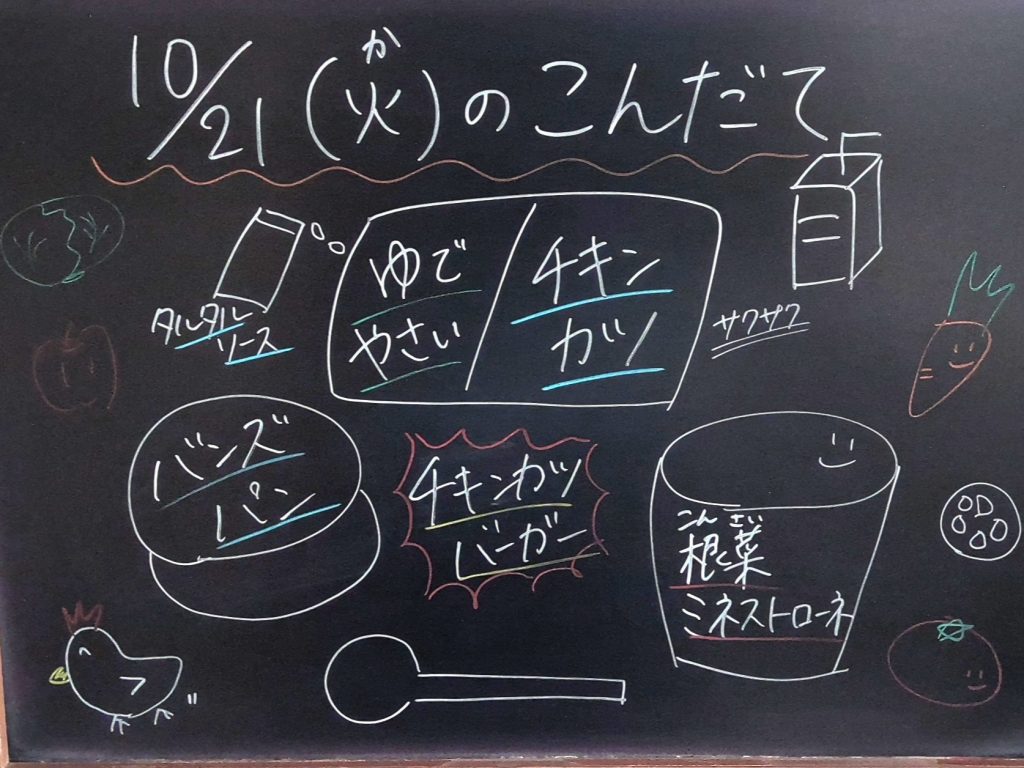 10/21(火)のこんだて
か
ゆで
やさい
チキン
カツ
タルタル
ソース
サクサク
バンズ
パン
チキンカツ
バーガー
こんさい
根菜
ミネストローネ